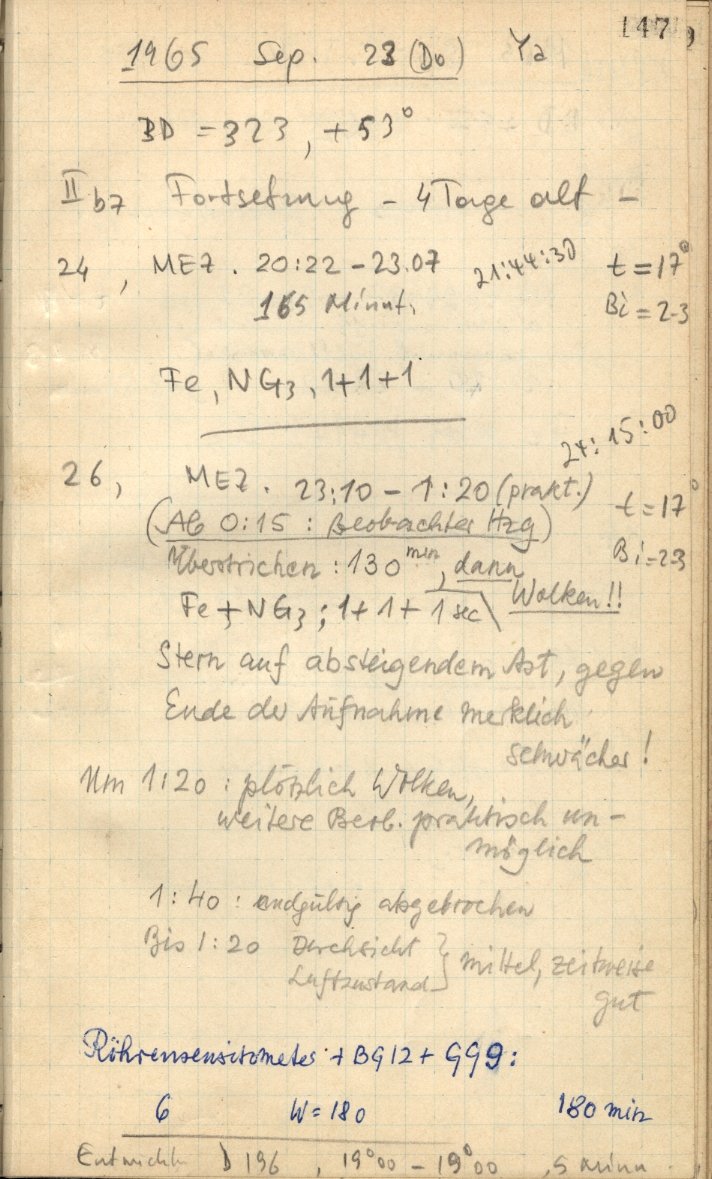 147
1965 Sep. 23 (Do) Ya
BD = 323, +53°
II b7 Fortsetzung - 4 Tage alt -
24, MEZ. 20:22 - 23.07 21:44:30 t = 17°
165 Minut. Bi = 2-3
Fe, NG3, 1+1+1
24:15:00
26, MEZ. 23:10 - 1:20 (prakt.) t = 17°
(Ab 0:15 : Beobachter Hzg) Bi = 2-3
Überstrichen: 130 min, dann
Wolken!!
Fe + NG3; 1+1+1 sec
Stern auf absteigendem Ast, gegen
Ende der Aufnahme merklich
schwächer!
Um 1:20 : plötzlich Wolken,
weitere Beob. praktisch un-
möglich
1:40 : endgültig abgebrochen
Bis 1:20 Durchsicht } mittel, zeitweise
Luftzustand gut
Röhrensensitometer + BG12 + GG9:
6 W = 180 180 min
Entwickl. D 196, 19°00 - 19°00, 5 Minu.